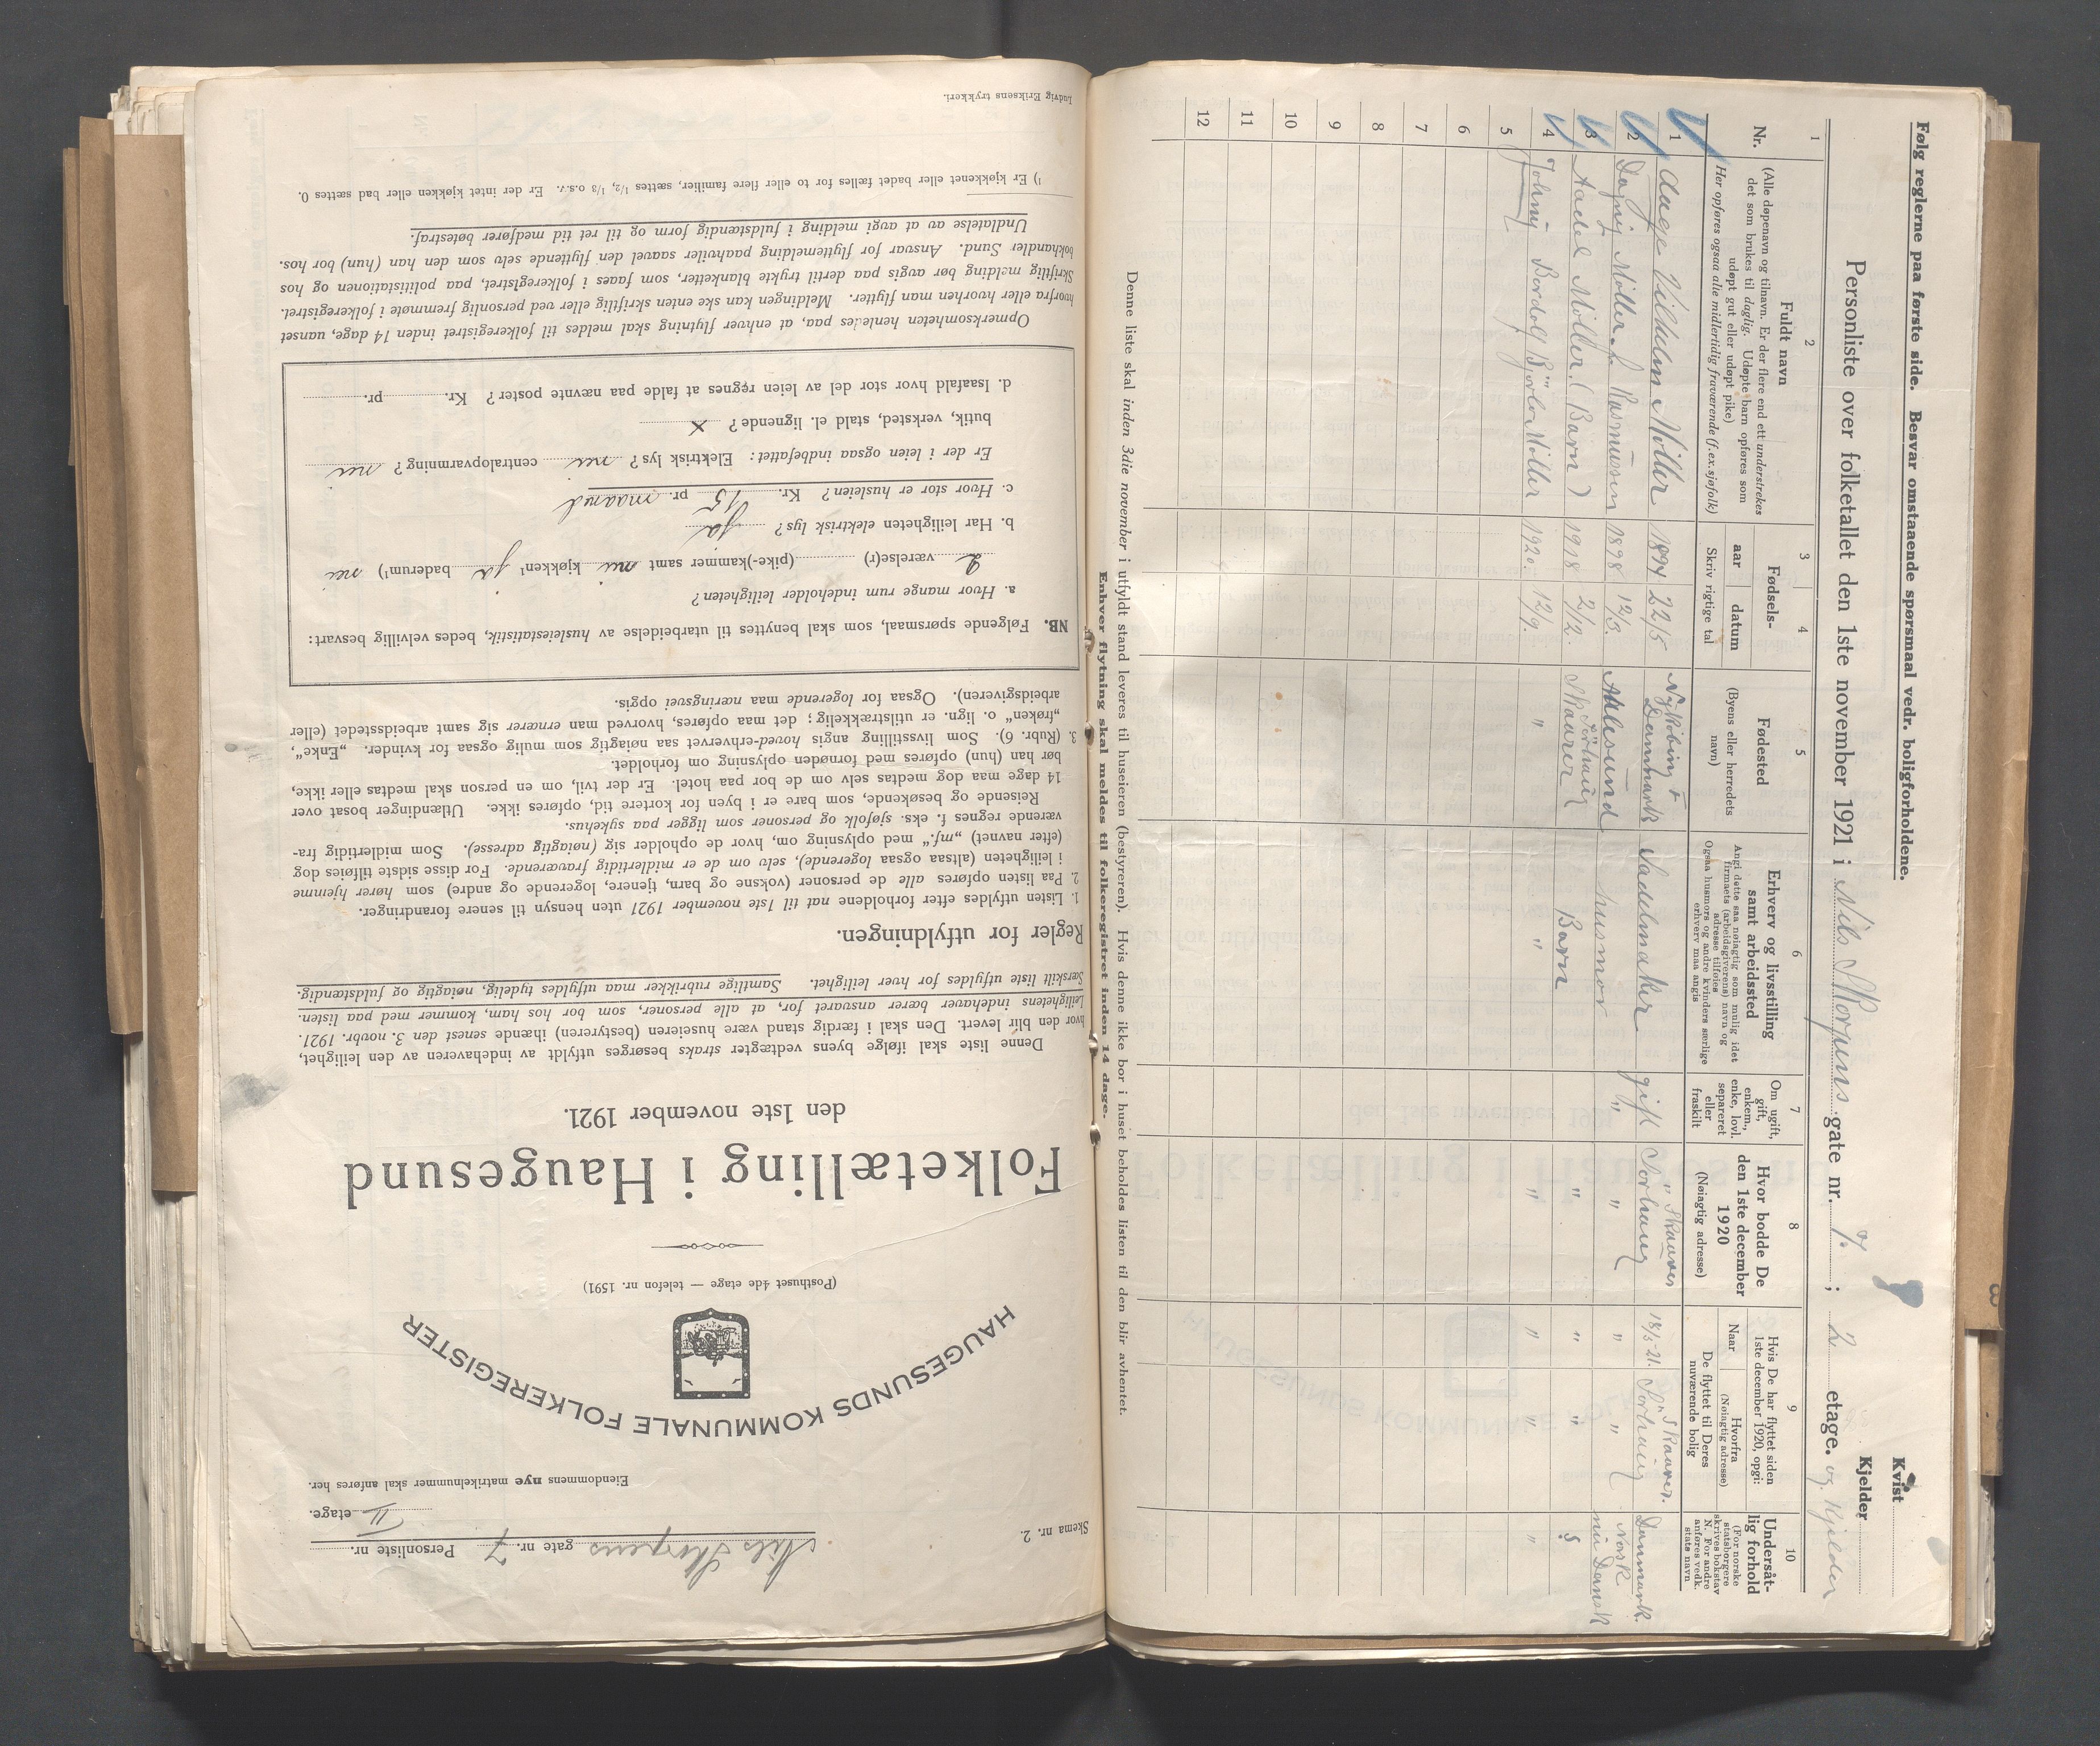 Skema nr. 2.
Nils Skorpens gate nr. 7 Personliste nr.
II etage.
Eiendommens nye matrikelnummer skal anføres her.
HAUGESUNDS KOMMUNALE FOLKEREGISTER
(Posthuset 4de etage — telefon nr. 1591)
Folketælling i Haugesund
den 1ste november 1921.
Denne liste skal ifølge byens vedtægter straks besørges utfyldt av indehaveren av den leilighet,
hvor den blir levert. Den skal i færdig stand være huseieren (bestyreren) ihænde senest den 3. novbr. 1921.
Leilighetens indehaver bærer ansvaret for, at alle personer, som bor hos ham, kommer med paa listen.
Særskilt liste utfyldes for hver leilighet. Samtlige rubrikker maa utfyldes tydelig, nøiagtig og fuldstændig.
Regler for utfyldningen.
1. Listen utfyldes efter forholdene nat til 1ste november 1921 uten hensyn til senere forandringer.
2. Paa listen opføres alle de personer (voksne og barn, tjenere, logerende og andre) som hører hjemme
i leiligheten (altsaa ogsaa logerende), selv om de er midlertidig fraværende. For disse sidste tilføies dog
(efter navnet) „mf.“ med oplysning om, hvor de opholder sig (nøiagtig adresse). Som midlertidig fra-
værende regnes f. eks. sjøfolk og personer som ligger paa sykehus.
Reisende og besøkende, som bare er i byen for kortere tid, opføres ikke. Utlændinger bosat over
14 dage maa dog medtas selv om de bor paa hotel. Er der tvil, om en person skal medtas eller ikke,
bør han (hun) opføres med fornøden oplysning om forholdet.
3. (Rubr. 6). Som livsstilling angis hoved-erhvervet saa nøiagtig som mulig ogsaa for kvinder. „Enke“,
„frøken“ o. lign. er utilstrækkelig; det maa opføres, hvorved man ernærer sig samt arbeidsstedet (eller
arbeidsgiveren). Ogsaa for logerende maa næringsvei opgis.
NB. Følgende spørsmaal, som skal benyttes til utarbeidelse av husleiestatistik, bedes velvillig besvart:
a. Hvor mange rum indeholder leiligheten?
2 værelse(r) (pike-)kammer samt nei kjøkken¹ ja baderum¹) nei
b. Har leiligheten elektrisk lys? ja
c. Hvor stor er husleien? Kr. 45 pr. maaned
Er der i leien ogsaa indbefattet: Elektrisk lys? nei centralopvarming? nei
butik, verksted, stald el. lignende? x
d. Isaafald hvor stor del av leien regnes at falde paa nævnte poster? Kr. pr.
Opmerksomheten henledes paa, at enhver flytning skal meldes til folkeregistret inden 14 dage, uanset
hvorfra eller hvorhen man flytter. Meldingen kan ske enten skriftlig eller ved personlig fremmøte i folkeregistret.
Skriftlig melding bør avgis paa dertil trykte blanketter, som faaes i folkeregistret, paa politistationen og hos
bokhandler Sund. Ansvar for flyttemelding paahviler saavel den flyttende selv som den han (hun) bor hos.
Undlatelse av at avgi melding i fuldstændig form og til ret tid medfører bøtestraf.
¹) Er kjøkkenet eller badet fælles for to eller flere familier, sættes 1/2, 1/3 o.s.v. Er der intet kjøkken eller bad sættes 0.
Ludvig Eriksens trykkeri.
Følg reglerne paa første side. Besvar omstaaende spørsmaal vedr. boligforholdene.
Kvist
Kjelder
Personliste over folketallet den 1ste november 1921 i Nils Skorpens gate nr. 7. ; 2 etage. og Kjelder
1 2 3 4 5 6 7 8 9 10
Nr.
Fuldt navn
(Alle døpenavn og tilnavn. Er der flere end ett understrekes
det som brukes til daglig. Udøpte barn opføres som
udøpt gut eller udøpt pike)
Her opføres ogsaa alle midlertidig fraværende (f.ex. sjøfolk)
Fødsels-
aar datum
Skriv rigtige tal
Fødested
(Byens eller herredets
navn)
Erhverv og livsstilling
samt arbeidssted
Angi dette saa nøiagtig som mulig idet
firmaets (arbeidsgiverens) navn og
adresse tilføies
Ogsaa husmors og andre kvinders særlige
erhverv maa angis
Om ugift,
gift,
enkem.,
enke, lovl.
separeret
eller
fraskilt
Hvor bodde De
den 1ste december
1920
(Nøiagtig adresse)
Hvis De har flyttet siden
1ste december 1920, opgi:
Naar Hvorfra
(Nøiagtig adresse)
De flyttet til Deres
nuværende bolig
Undersåt-
lig forhold
(For norske
statsborgere
skrives bokstav
N. For andre
anføres vedk.
stats navn
1 Aage Vilhelm Møller 1894 22/5 Nykibing Danmark Sadelmaker gift Sørhaug " Skaarer 18/5-21. Sørhaug " Skaarer. Danmark.
2 Dagny Møller f. Rasmussen 1898 12/3. Aalesund husmor " " " " Norsk nu Dansk
3 Aadel Møller. (Barn) 1918 2/2. Sørhaug Skaarer Barn " " " §
4 Johnny Bordolf Bjørlo Møller 1920. 12/9. " " " " " "
5
6
7
8
9
10
11
12
Denne liste skal inden 3die november i utfyldt stand leveres til huseieren (bestyreren). Hvis denne ikke bor i huset beholdes listen til den blir avhentet.
Enhver flytning skal meldes til folkeregistret inden 14 dage.